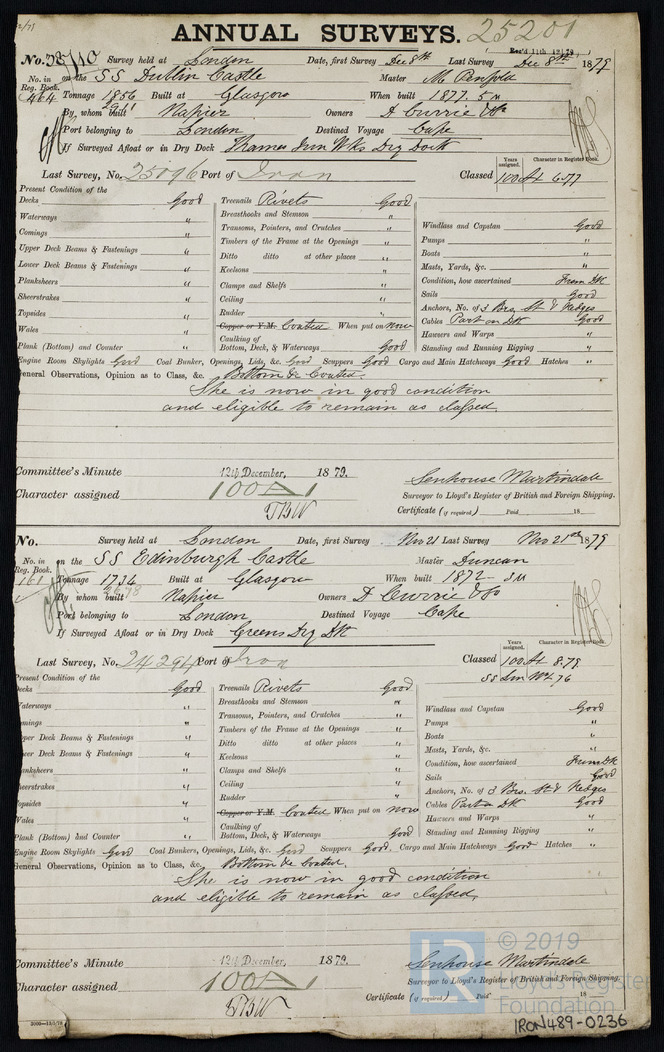 ANNUAL SURVEYS. 25201
Rec'd 11th 12 79
No. 38710 Survey held at London Date, first Survey Dec 8th Last Survey Dec 8th 1879
No. in Reg. Book. on the SS Dublin Castle Master M. Penfold
464 Tonnage 1856 Built at Glasgow When built 1877. 5 m
2911
By whom built Napier Owners D Currie & Co
Port belonging to London Destined Voyage Cape
If Surveyed Afloat or in Dry Dock Thames Iron Wks Dry Dock
Years assigned. Character in Register Book.
Last Survey, No. 25096 Port of Iron Classed 100 A1 6.77
Present Condition of the
Decks Good Treenails Rivets Good
Waterways " Breasthooks and Stemson " Windlass and Capstan Good
Comings " Transoms, Pointers, and Crutches " Pumps "
Upper Deck Beams & Fastenings " Timbers of the Frame at the Openings " Boats "
Lower Deck Beams & Fastenings " Ditto ditto at other places " Masts, Yards, &c. "
Planksheers " Keelsons " Condition, how ascertained From DK
Sheerstrakes " Clamps and Shelfs " Sails Good
Topsides " Ceiling " Anchors, No. of 3 Brs. St & Kedges
Wales " Rudder " Cables Part on DK Good
Copper or Y.M. Coated When put on now Hawsers and Warps "
Plank (Bottom) and Counter " Caulking of Bottom, Deck, & Waterways Good Standing and Running Rigging "
Engine Room Skylights Good Coal Bunker, Openings, Lids, &c. Good Scuppers Good Cargo and Main Hatchways Good Hatches "
General Observations, Opinion as to Class, &c. Bottom &c Coated.
She is now in good condition
and eligible to remain as classed.
Committee's Minute 12th December, 1879.
Character assigned 100 A 1
Senhouse Martindale
Surveyor to Lloyd's Register of British and Foreign Shipping.
Certificate (if required) Paid 18
No. Survey held at London Date, first Survey Nov 21 Last Survey Nov 21st 1879
No. in Reg. Book. on the SS Edinburgh Castle Master Duncan
161 Tonnage 1734 Built at Glasgow When built 1872 - 3 m
2678
By whom built Napier Owners D Currie & Co
Port belonging to London Destined Voyage Cape
If Surveyed Afloat or in Dry Dock Greens Dry DK
Years assigned. Character in Register Book.
Last Survey, No. 24294 Port of Iron Classed 100 A1 8.79
SS Lon No 4 76
Present Condition of the
Decks Good Treenails Rivets Good
Waterways " Breasthooks and Stemson " Windlass and Capstan Good
Comings " Transoms, Pointers, and Crutches " Pumps "
Upper Deck Beams & Fastenings " Timbers of the Frame at the Openings " Boats "
Lower Deck Beams & Fastenings " Ditto ditto at other places " Masts, Yards, &c. "
Planksheers " Keelsons " Condition, how ascertained From DK
Sheerstrakes " Clamps and Shelfs " Sails Good
Topsides " Ceiling " Anchors, No. of 3 Brs. St & Kedges
Wales " Rudder " Cables Part on DK Good
Copper or Y.M. Coated When put on now Hawsers and Warps "
Plank (Bottom) and Counter " Caulking of Bottom, Deck, & Waterways Good Standing and Running Rigging "
Engine Room Skylights Good Coal Bunkers, Openings, Lids, &c. Good Scuppers Good Cargo and Main Hatchways Good Hatches "
General Observations, Opinion as to Class, &c. Bottom &c Coated.
She is now in good condition
and eligible to remain as classed,
Committee's Minute 12th December, 1879.
Character assigned 100 A 1
Senhouse Martindale
Surveyor to Lloyd's Register of British and Foreign Shipping.
Certificate (if required) Paid 18
© 2019
Lloyd's Register
Foundation
IRON489-0236